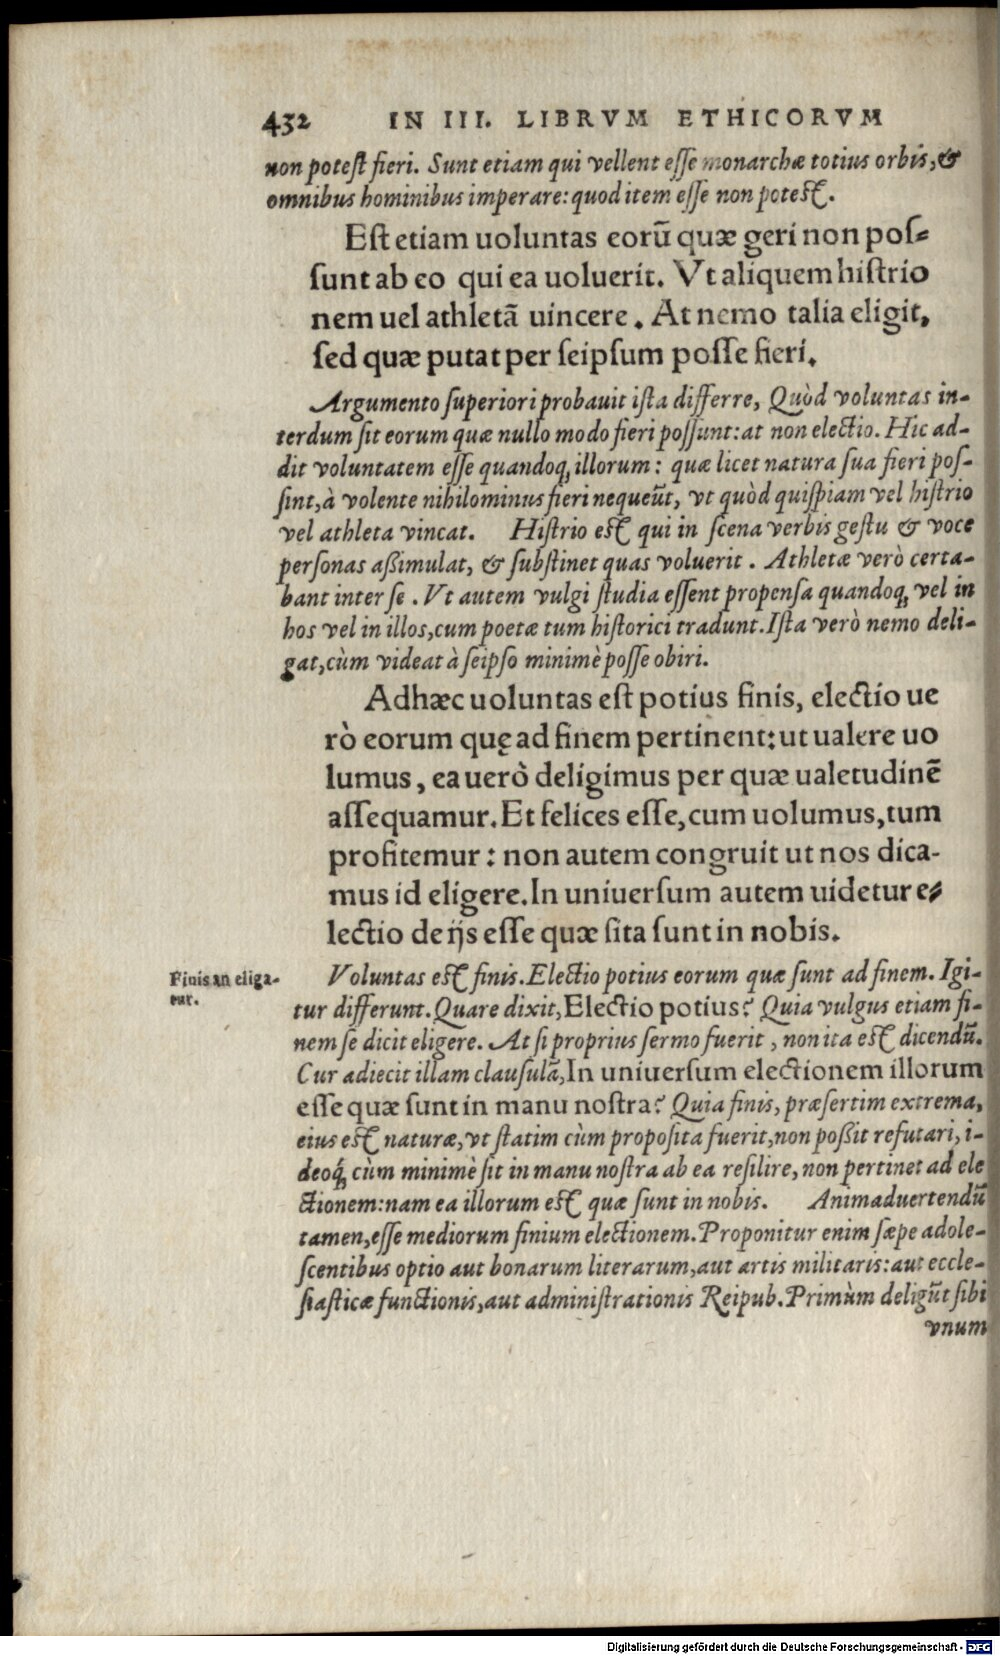 432 IN III. LIBRVM ETHICORVM
non potest fieri. Sunt etiam qui vellent esse monarchæ totius orbis, &
omnibus hominibus imperare: quod item esse non potest.
Est etiam uoluntas eorū quæ geri non pos=
sunt ab eo qui ea uoluerit. Vt aliquem histrio
nem uel athletã uincere. At nemo talia eligit,
sed quæ putat per seipsum posse fieri.
Argumento superiori probauit ista differre, Quòd voluntas in-
terdum sit eorum quæ nullo modo fieri possunt: at non electio. Hic ad-
dit voluntatem esse quandoq; illorum: quæ licet natura sua fieri pos-
sint, à volente nihilominus fieri nequeũt, vt quòd quispiam vel histrio
vel athleta vincat. Histrio est qui in scena verbis gestu & voce
personas aßimulat, & substinet quas voluerit. Athletæ verò certa-
bant inter se. Vt autem vulgi studia essent propensa quandoq; vel in
hos vel in illos, cum poetæ tum historici tradunt. Ista verò nemo deli-
gat, cùm videat à seipso minimè posse obiri.
Adhæc uoluntas est potius finis, electio ue
rò eorum quę ad finem pertinent: ut ualere uo
lumus, ea uerò deligimus per quæ ualetudinē
assequamur. Et felices esse, cum uolumus, tum
profitemur: non autem congruit ut nos dica-
mus id eligere. In uniuersum autem uidetur e=
lectio de ijs esse quæ sita sunt in nobis.
Finis an eliga-
tur.
Voluntas est finis. Electio potius eorum quæ sunt ad finem. Igi-
tur differunt. Quare dixit, Electio potius? Quia vulgus etiam fi-
nem se dicit eligere. At si proprius sermo fuerit, non ita est dicendũ.
Cur adiecit illam clausulã, In uniuersum electionem illorum
esse quæ sunt in manu nostra? Quia finis, præsertim extrema,
eius est naturæ, vt statim cùm proposita fuerit, non poßit refutari, i-
deoq́; cùm minimè sit in manu nostra ab ea resilire, non pertinet ad ele
ctionem: nam ea illorum est quæ sunt in nobis. Animaduertendũ
tamen, esse mediorum finium electionem. Proponitur enim sæpe adole-
scentibus optio aut bonarum literarum, aut artis militaris: aut eccle-
siasticæ functionis, aut administrationis Reipub. Primùm deligũt sibi
vnum
Digitalisierung gefördert durch die Deutsche Forschungsgemeinschaft - DFG